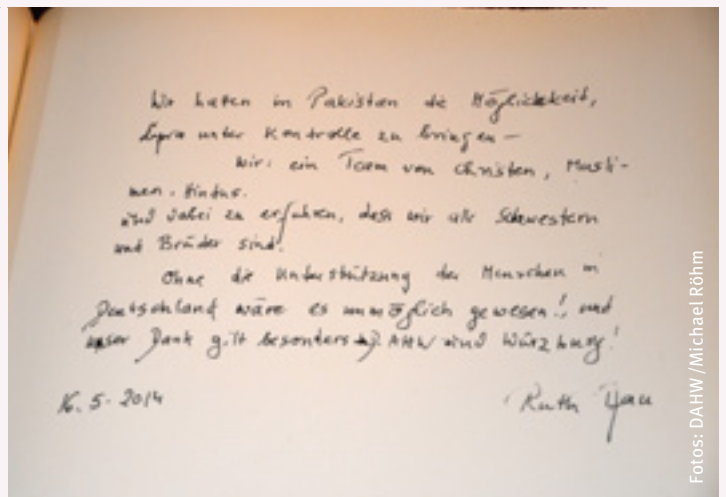 Wir hatten in Pakistan die Möglichkeit,
Lepra unter Kontrolle zu bringen –
wir: ein Team von Christen, Musli-
men, Hindus.
und dabei zu erfahren, dass wir alle Schwestern
und Brüder sind.
Ohne die Unterstützung der Menschen in
Deutschland wäre es unmöglich gewesen!, und
unser Dank gilt besonders AHW und Würzburg!
16.5.2014
Ruth Pfau
Fotos: DAHW/Michael Röhm